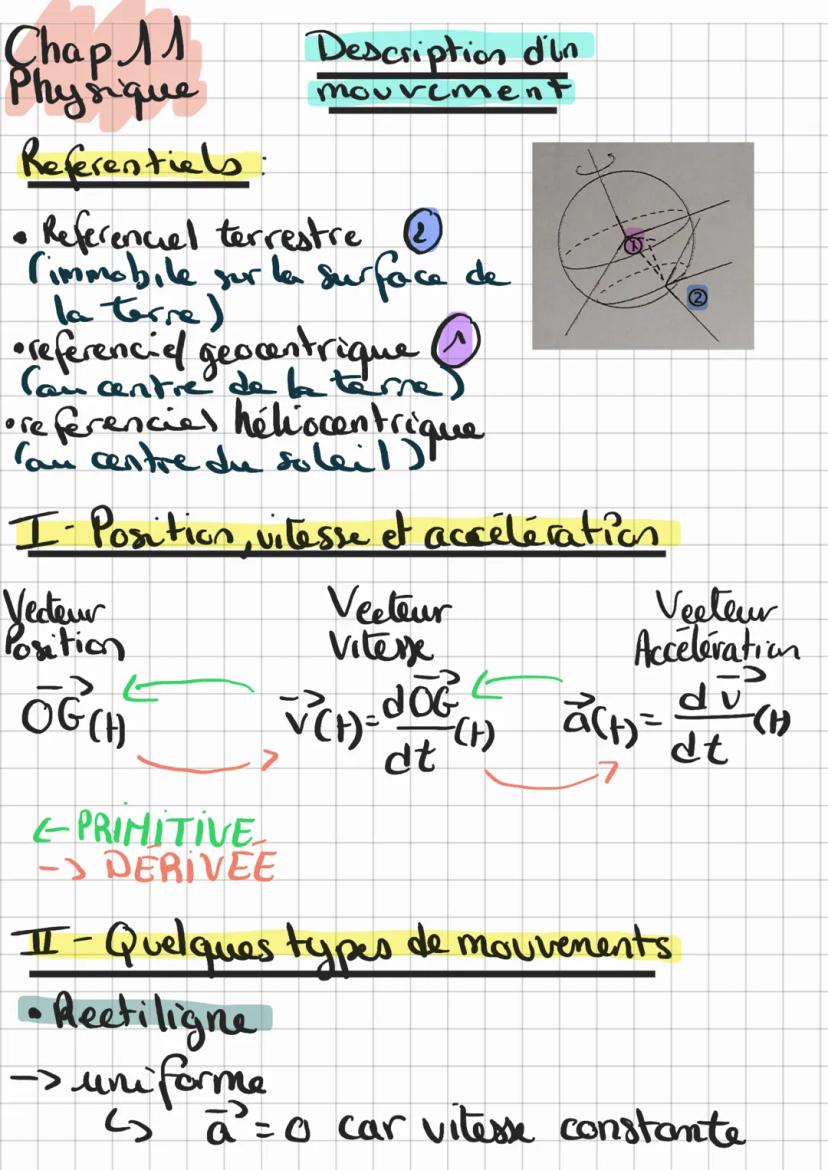 Chap 11
Physique
Description d'un
mouvement
Referentiels :
• Referenciel terrestre ②
(immobile sur la surface de
la terre)
• referenciel geocentrique ①
(au centre de la terre)
• referenciel héliocentrique
(au centre du soleil)
①
②
I - Position, vitesse et accélération
Vecteur
Position
Vecteur
Vitesse
Vecteur
Accélération
→OG(t)
→v(t) = d→OG/dt (t)
→a(t) = d→v/dt (t)
← PRIMITIVE
-> DÉRIVÉE
II - Quelques types de mouvements
• Rectiligne
-> uniforme
↳ →a = 0 car vitesse constante